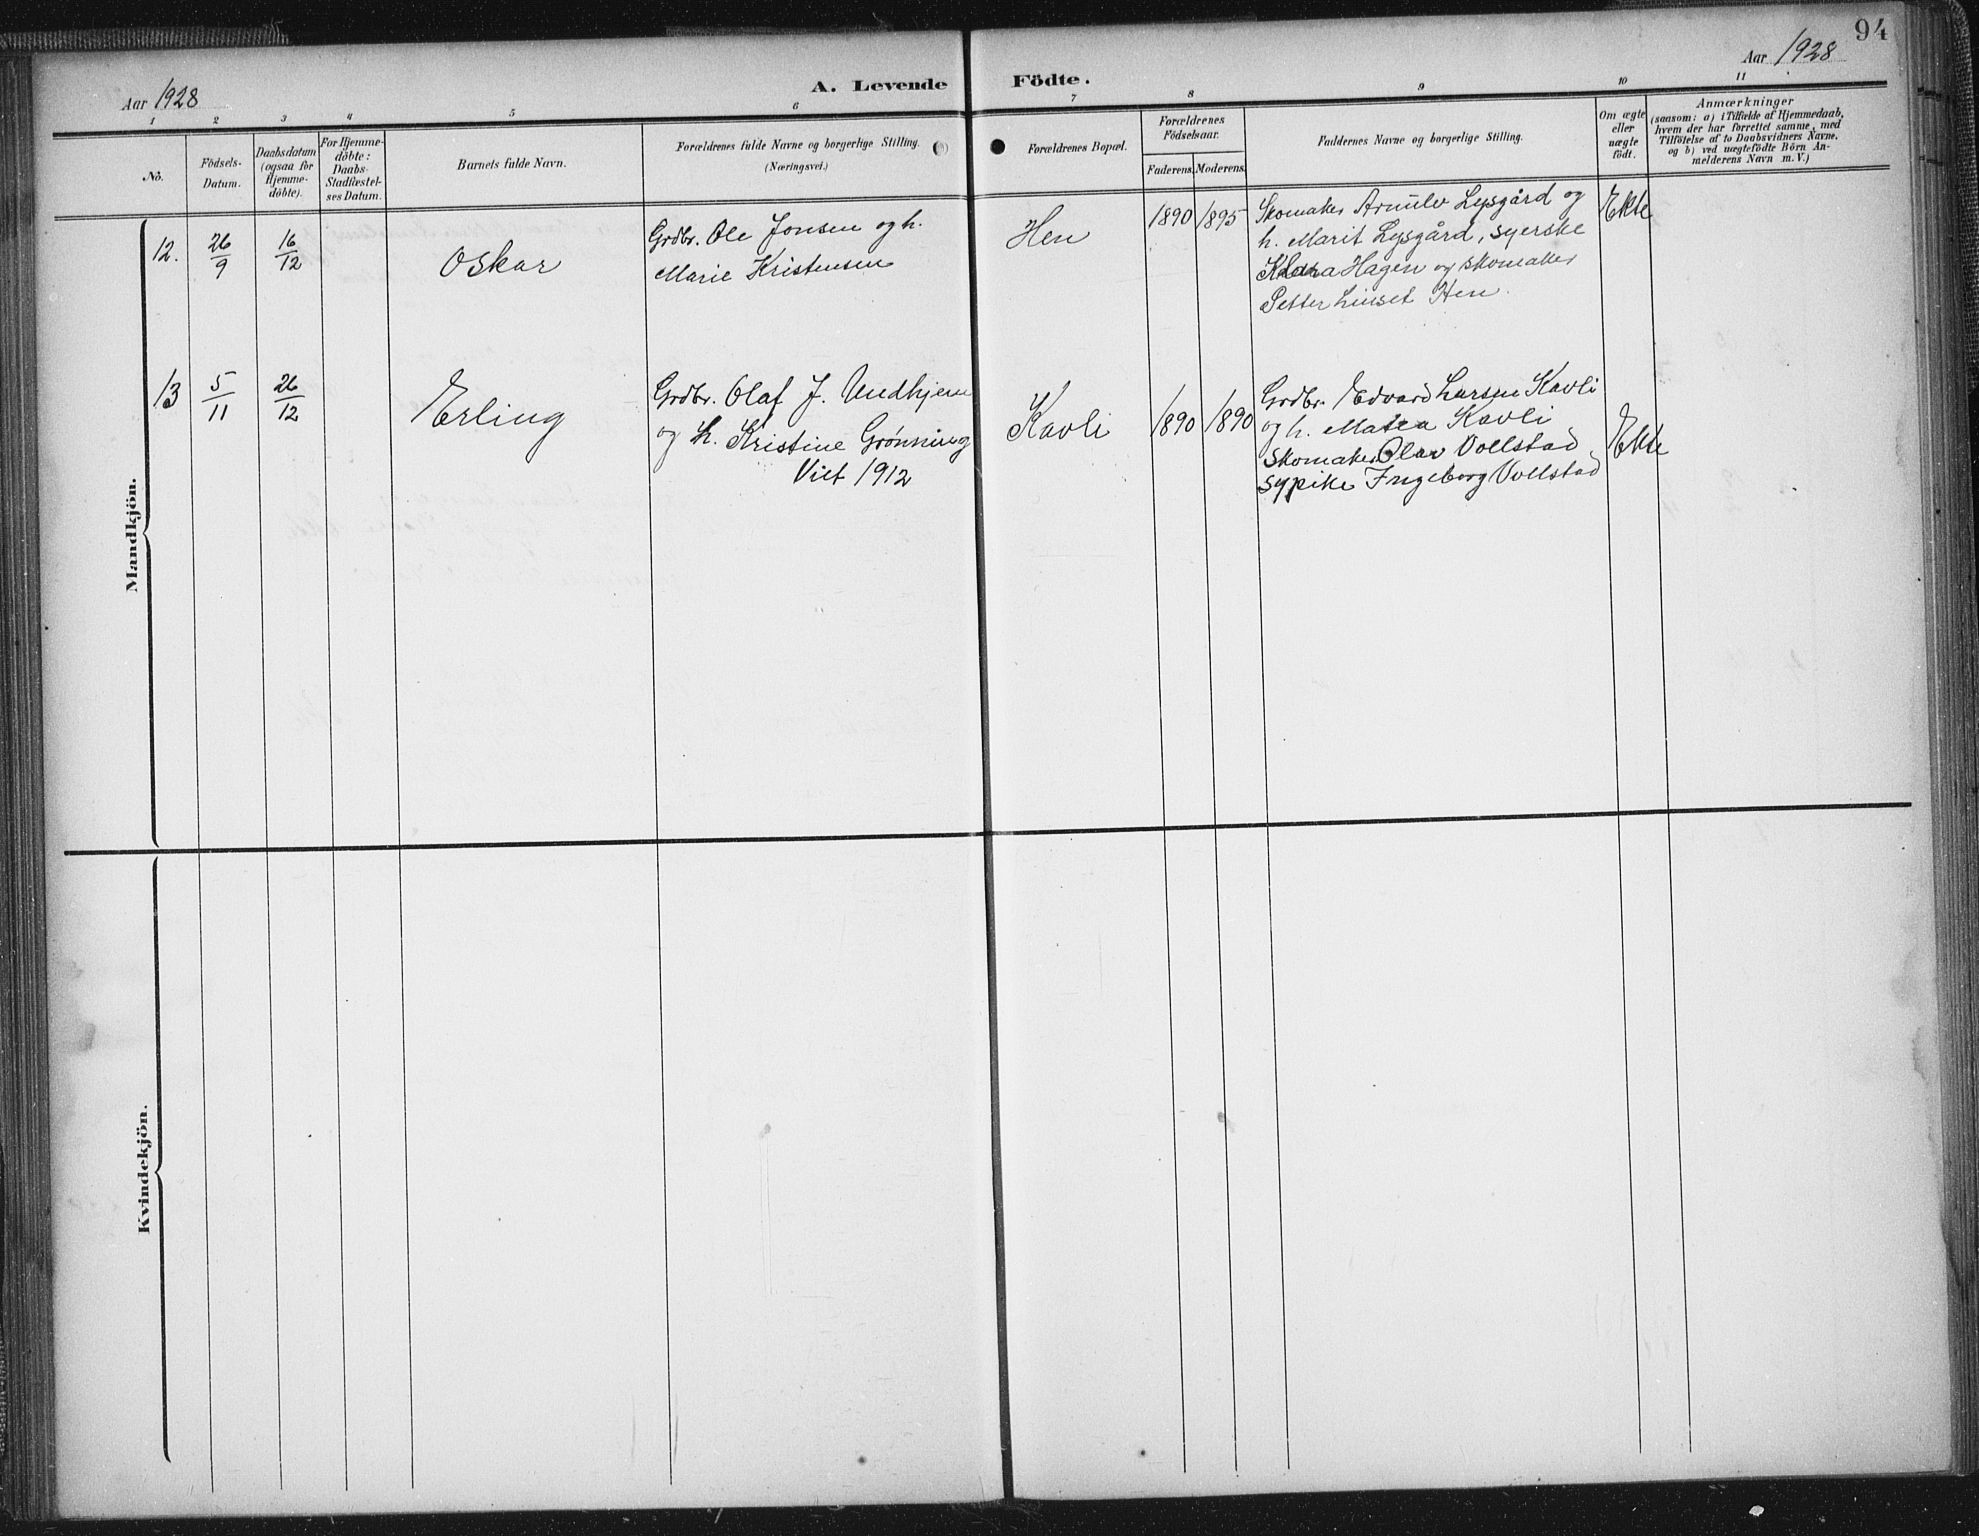 94
Aar 1928
A. Levende Födte.
Aar 1928
1 2 3 4 5 6 7 8 9 10 11
No.
Födsels-
Datum.
Daabsdatum
(ogsaa for
Hjemme-
döbte).
For Hjemme-
döbte:
Daabs-
Stadfæstel-
ses Datum.
Barnets fulde Navn.
Forældrenes fulde Navne og borgerlige Stilling.
(Næringsvei.)
Forældrenes Bopæl.
Forældrenes
Födselsaar.
Faderens. Moderens.
Faddernes Navne og borgerlige Stilling.
Om ægte
eller
uægte
födt.
Anmærkninger
(saasom: a) i Tilfælde af Hjemmedaab,
hvem der har forrettet samme, med
Tilföielse af to Daabsvidners Navne,
og b) ved uægtefödte Börn An-
melderens Navn m. V.)
Mandkjön.
12.
26
9
16
12
Oskar
Grdbr. Ole Jonsen og h.
Marie Kristensen
Hen
1890 1895
Skomaker Arnulv Lysgård og
h. Marit Lysgård, syerske
Klara Hagen og skomaker
Petter Linset Hen.
Ekte
13
5
11
26
12
Erling
Grdbr. Olaf J. Undhjem
og h. Kristine Grønning
Viet 1912
Kavli
1890 1890
Grdbr. Edvard Larsen Kavli
og h. Matea Kavli
skomaker Olav Vollstad
sypike Ingeborg Vollstad
Ekte
Kvindekjön.